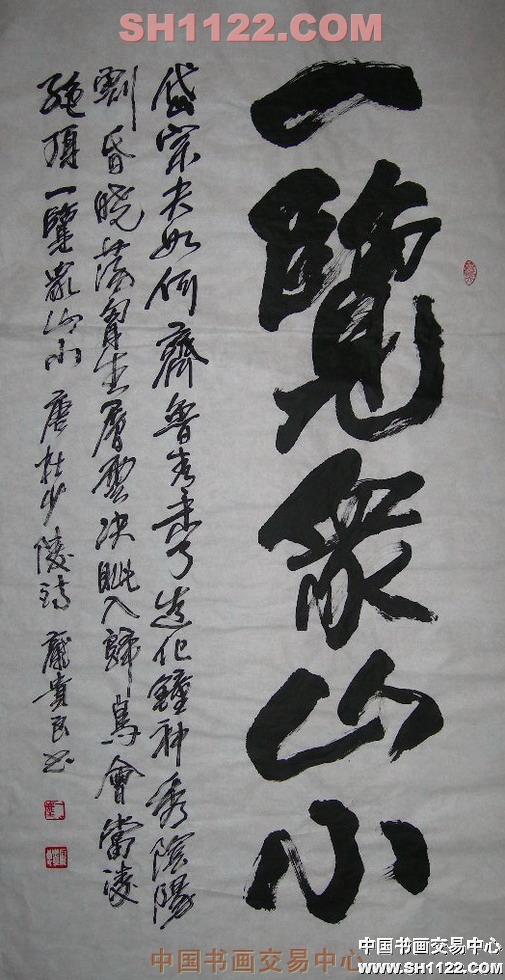 SH1122.COM
一覽衆山小
岱宗夫如何齊魯青未了造化鍾神秀陰陽
割昏曉蕩胷生層雲决眦入歸鳥會當凌
絶頂一覽衆山小 唐杜少陵詩 龐貴民书
中国书画交易中心
中国书画交易中心
www.SH1122.com